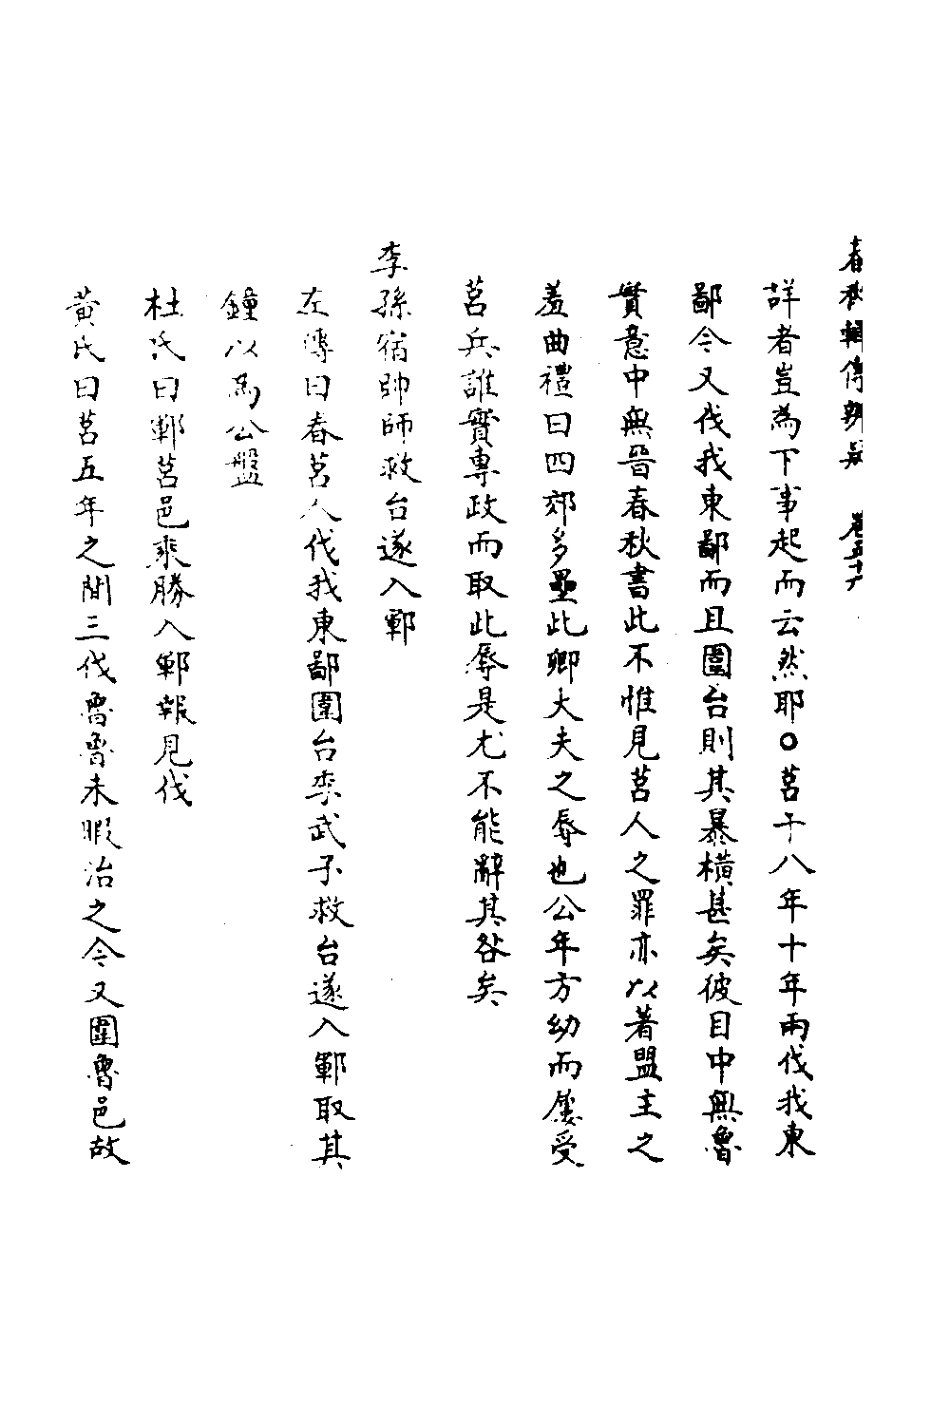 春秋輯傳辨疑 卷五十六
詳者豈為下事起而云然耶○莒于八年十年兩伐我東
鄙今又伐我東鄙而且圍台則其暴橫甚矣彼目中無魯
實意中無晉春秋書此不惟見莒人之罪亦以著盟主之
羞曲禮曰四郊多壘此卿大夫之辱也公年方幼而屢受
莒兵誰實專政而取此辱是尤不能辭其咎矣
季孫宿帥師救台遂入鄆
左傳曰春莒人伐我東鄙圍台季武子救台遂入鄆取其
鐘以為公盤
杜氏曰鄆莒邑乘勝入鄆報見伐
黃氏曰莒五年之間三伐魯魯未暇治之今又圍魯邑故